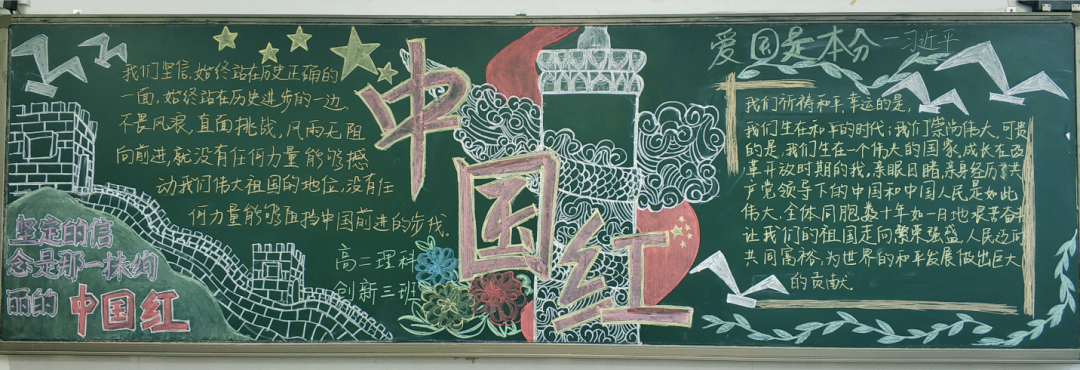 我们坚信,始终站在历史正确的
一面,始终站在历史进步的一边,
不畏风浪,直面挑战,风雨无阻
向前进,就没有任何力量能够撼
动我们伟大祖国的地位,没有任
何力量能够阻挡中国前进的步伐.
高二理科
创新三班
坚定的信
念是那一抹绚
丽的中国红
中国红
爱国是本分 —习近平
我们祈祷和平,幸运的是,
我们生在和平的时代;我们崇尚伟大,可贵
的是,我们生在一个伟大的国家.成长在改
革开放时期的我,亲眼目睹,亲身经历了共
产党领导下的中国和中国人民是如此
伟大.全体同胞数十年如一日地艰苦奋斗
让我们的祖国走向繁荣强盛,人民迈向
共同富裕,为世界的和平发展做出巨大
的贡献.